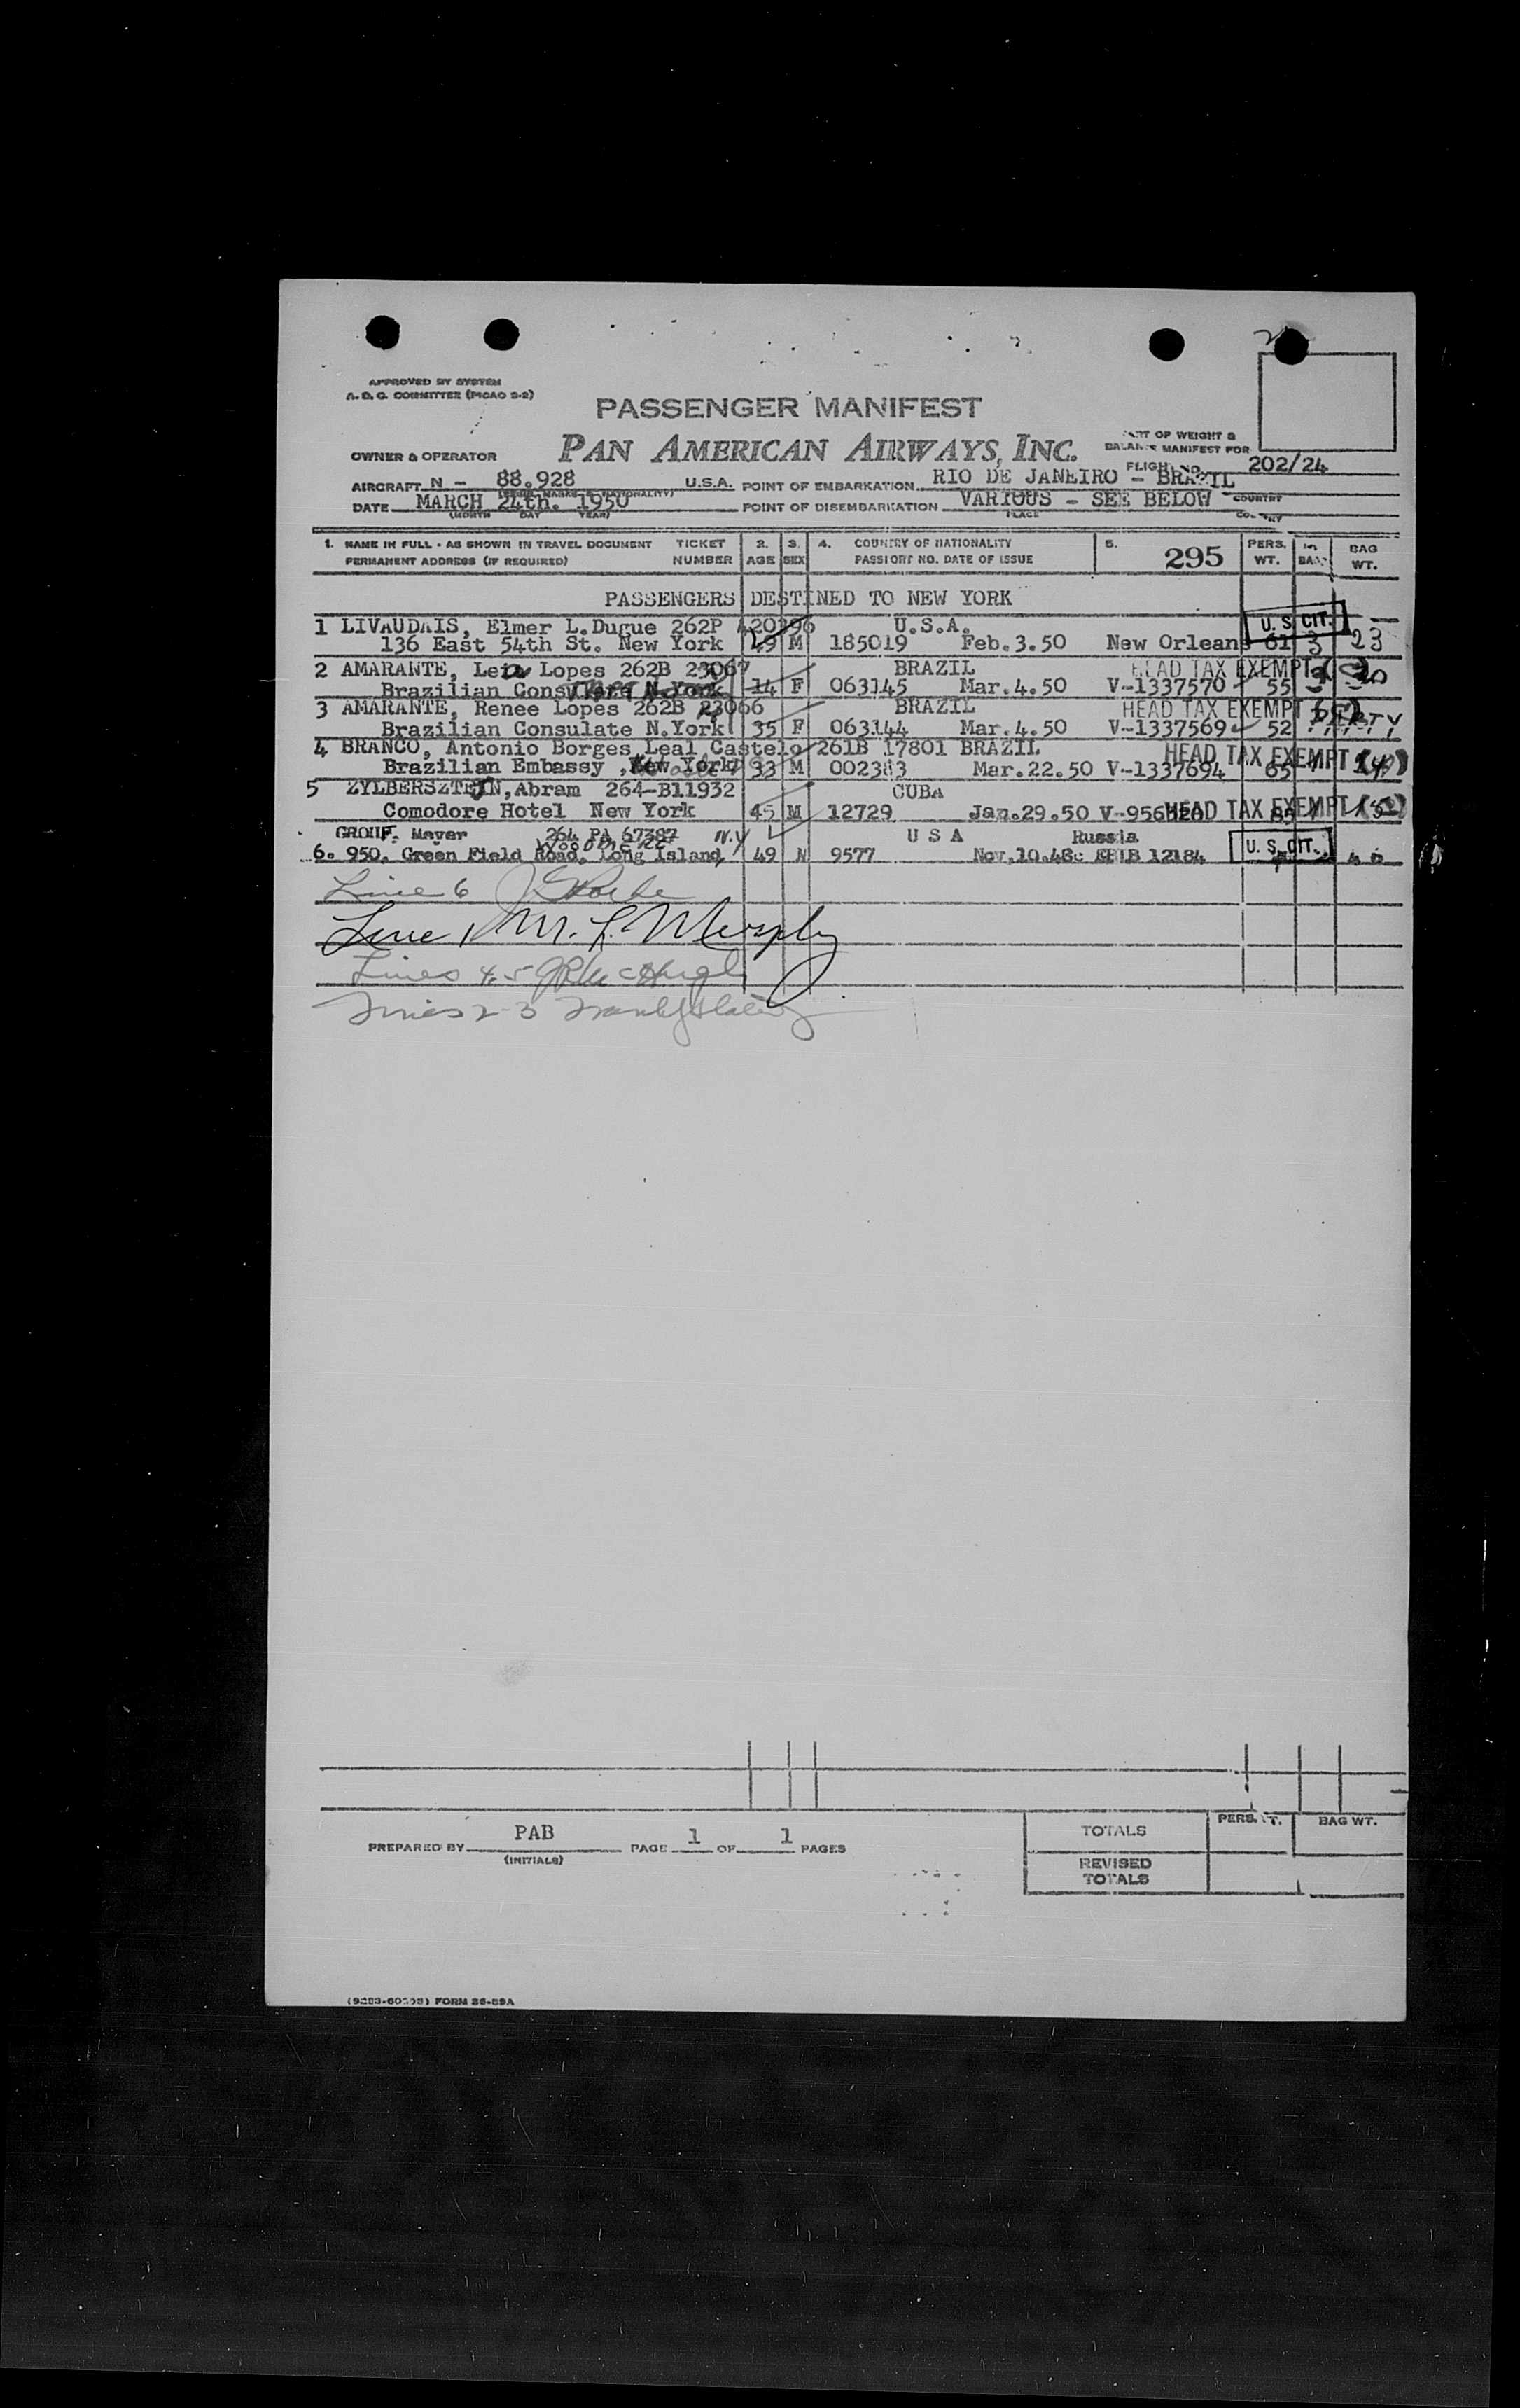 APPROVED BY SYSTEM
A. D. C. COMMITTEE (PICAO S-2)
PASSENGER MANIFEST
PAN AMERICAN AIRWAYS, INC.
PART OF WEIGHT &
BALANCE MANIFEST FOR
OWNER & OPERATOR
FLIGHT NO. 202/24
AIRCRAFT N - 88.928 U.S.A. POINT OF EMBARKATION RIO DE JANEIRO - BRAZIL
DATE MARCH 24th. 1950 POINT OF DISEMBARKATION VARIOUS - SEE BELOW
(MONTH DAY YEAR) PLACE COUNTRY
1. NAME IN FULL - AS SHOWN IN TRAVEL DOCUMENT TICKET 2. 3. 4. COUNTRY OF NATIONALITY 5. 295 PERS. BAG
PERMANENT ADDRESS (IF REQUIRED) NUMBER AGE SEX PASSPORT NO. DATE OF ISSUE WT. WT.
PASSENGERS DESTINED TO NEW YORK
1 LIVAUDAIS, Elmer L.Dugue 262P 420396 U.S.A. U. S. CIT.
136 East 54th St. New York 49 M 185019 Feb.3.50 New Orleans 61 3 23
2 AMARANTE, Leia Lopes 262B 23067 BRAZIL HEAD TAX EXEMPT
Brazilian Consulate N.York 14 F 063145 Mar.4.50 V-1337570 55
3 AMARANTE, Renee Lopes 262B 23066 BRAZIL HEAD TAX EXEMPT
Brazilian Consulate N.York 35 F 063144 Mar.4.50 V-1337569 52
4 BRANCO, Antonio Borges Leal Castelo 261B 17801 BRAZIL HEAD TAX EXEMPT
Brazilian Embassy , New York 33 M 002383 Mar.22.50 V-1337694 65
5 ZYLBERSZTEJN, Abram 264-B11932 CUBA
Comodore Hotel New York 45 M 12729 Jan.29.50 HEAD TAX EXEMPT
GROUF. Meyer 264 PA 67387 N.Y USA Russia
Woodmere
6. 950, Green Field Road, Long Island, 49 M 9577 Nov.10.48 12184 U. S. CIT.
Line 6
Line 1 M. L. Murphy
Lines 4.5 McHugh
Lines 2-3
PREPARED BY PAB PAGE 1 OF 1 PAGES
(INITIALS)
TOTALS PERS. WT. BAG WT.
REVISED
TOTALS
FORM 86-59A